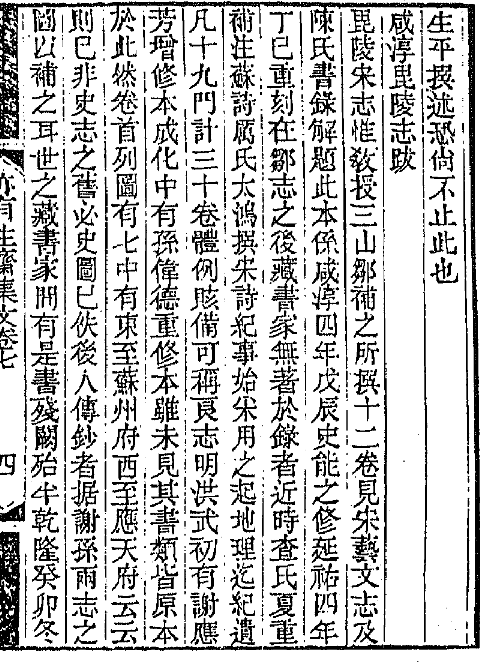 生平撰述恐尙不止此也
咸淳毘陵志跋
毘陵宋志惟敎授三山鄒補之所撰十二卷見宋藝文志及
陳氏書錄解題此本係咸淳四年戊辰史能之修延祐四年
丁巳重刻在鄒志之後藏書家無著於錄者近時查氏夏重
補注蘇詩厲氏太鴻撰宋詩紀事始采用之起地理迄紀遺
凡十九門計三十卷體例賅備可稱良志明洪武初有謝應
芳增修本成化中有孫偉德重修本雖未見其書類皆原本
於此然卷首列圖有七中有東至蘇州府西至應天府云云
則已非史志之舊必史圖已佚後人傳鈔者据謝孫兩志之
圖以補之耳世之藏書家閒有是書殘闕殆半乾隆癸卯冬
亦有生齋集文卷七
四